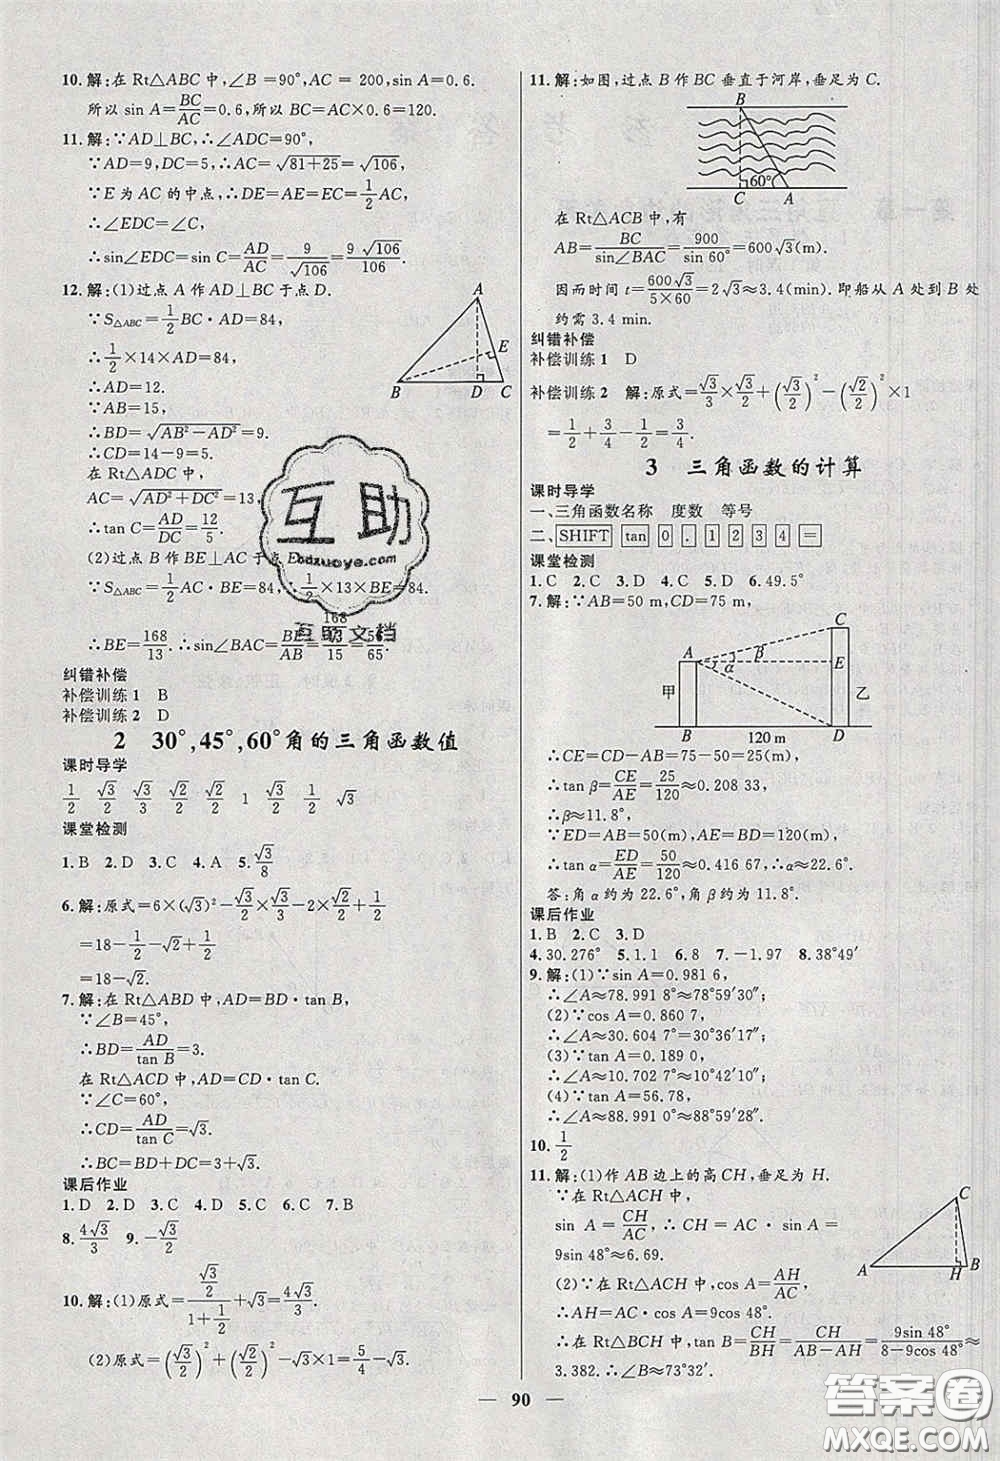 10. 解:在 Rt△ABC 中,∠B=90°,AC=200,sin A=0.6.
所以 sin A=BC/AC=0.6,所以 BC=AC×0.6=120.
11. 解:∵AD⊥BC,∴∠ADC=90°,
∵AD=9,DC=5,∴AC=√(81+25)=√106,
∵E 为 AC 的中点,∴DE=AE=EC=1/2 AC,
∴∠EDC=∠C,
∴sin∠EDC=sin∠C=AD/AC=9/√106=9√106/106.
12. 解:(1)过点 A 作 AD⊥BC 于点 D.
∵S△ABC=1/2 BC·AD=84,
∴1/2×14×AD=84,
∴AD=12.
∵AB=15,
∴BD=√(AB²-AD²)=9.
∴CD=14-9=5.
在 Rt△ADC 中,
AC=√(AD²+DC²)=13,
∴tan C=AD/DC=12/5.
(2)过点 B 作 BE⊥AC 于点 E,
∵S△ABC=1/2 AC·BE=84,∴1/2×13×BE=84.
∴BE=168/13.∴sin∠BAC=BE/AB=(168/13)/15=56/65.
A
E
B
D
C
纠错补偿
补偿训练 1 B
补偿训练 2 D
2 30°,45°,60°角的三角函数值
课时导学
1/2 √3/2 √3/3 √2/2 √2/2 1 √3/2 1/2 √3
课堂检测
1. B 2. D 3. C 4. A 5. √3/8
6. 解:原式=6×(√3)²-√3/2×√3/2-2×√2/2+1/2
=18-1/2-√2+1/2
=18-√2.
7. 解:在 Rt△ABD 中,AD=BD·tan B,
∵∠B=45°,
∴BD=AD/tan B=3.
在 Rt△ACD 中,AD=CD·tan C.
∵∠C=60°,
∴CD=AD/tan C=√3.
∴BC=BD+DC=3+√3.
课后作业
1. D 2. D 3. C 4. A 5. C 6. C 7. B
8. 4√3/3 9. -√3
10. 解:(1)原式=(√3/2)/(1+1/2)+√3=4√3/3.
(2)原式=(√3/2)²+(√2/2)²-√3×1=5/4-√3.
11. 解:如图,过点 B 作 BC 垂直于河岸,垂足为 C.
B
60°
C
A
在 Rt△ACB 中,有
AB=BC/sin∠BAC=900/sin 60°=600√3(m).
因而时间 t=600√3/(5×60)=2√3≈3.4(min). 即船从 A 处到 B 处
约需 3.4 min.
纠错补偿
补偿训练 1 D
补偿训练 2 解:原式=√3/3×√3/2+(√3/2)²-(√2/2)²×1
=1/2+3/4-1/2=3/4.
3 三角函数的计算
课时导学
一、三角函数名称 度数 等号
二、SHIFT tan 0 . 1 2 3 4 =
课堂检测
1. C 2. C 3. D 4. C 5. D 6. 49.5°
7. 解:∵AB=50 m,CD=75 m,
C
A
β
α
E
甲
乙
B
120 m
D
∴CE=CD-AB=75-50=25(m).
∴tan β=CE/AE=25/120≈0.208 33,
∴β≈11.8°.
∵ED=AB=50(m),AE=BD=120(m),
∴tan α=ED/AE=50/120≈0.416 67,∴α≈22.6°.
答:角 α 约为 22.6°,角 β 约为 11.8°.
课后作业
1. B 2. C 3. D
4. 30.276° 5. 1.1 6. 8 7. -1.97 8. 38°49′
9. 解:(1)∵sin A=0.981 6,
∴∠A≈78.991 8°≈78°59′30″;
(2)∵cos A=0.860 7,
∴∠A≈30.604 7°=30°36′17″;
(3)∵tan A=0.189 0,
∴∠A≈10.702 7°≈10°42′10″;
(4)∵tan A=56.78,
∴∠A≈88.991 0°≈88°59′28″.
10. 1/2
11. 解:(1)作 AB 边上的高 CH,垂足为 H.
∵在 Rt△ACH 中,
sin A=CH/AC,∴CH=AC·sin A=
9sin 48°≈6.69.
(2)∵在 Rt△ACH 中,cos A=AH/AC,
∴AH=AC·cos A=9cos 48°.
∴在 Rt△BCH 中,tan B=CH/BH=CH/(AB-AH)=9sin 48°/(8-9cos 48°)≈
3.382. ∴∠B≈73°32′.
C
A
H
B
90
互助
bdzuoye.com
互助文档
答案圈
MXQE.COM